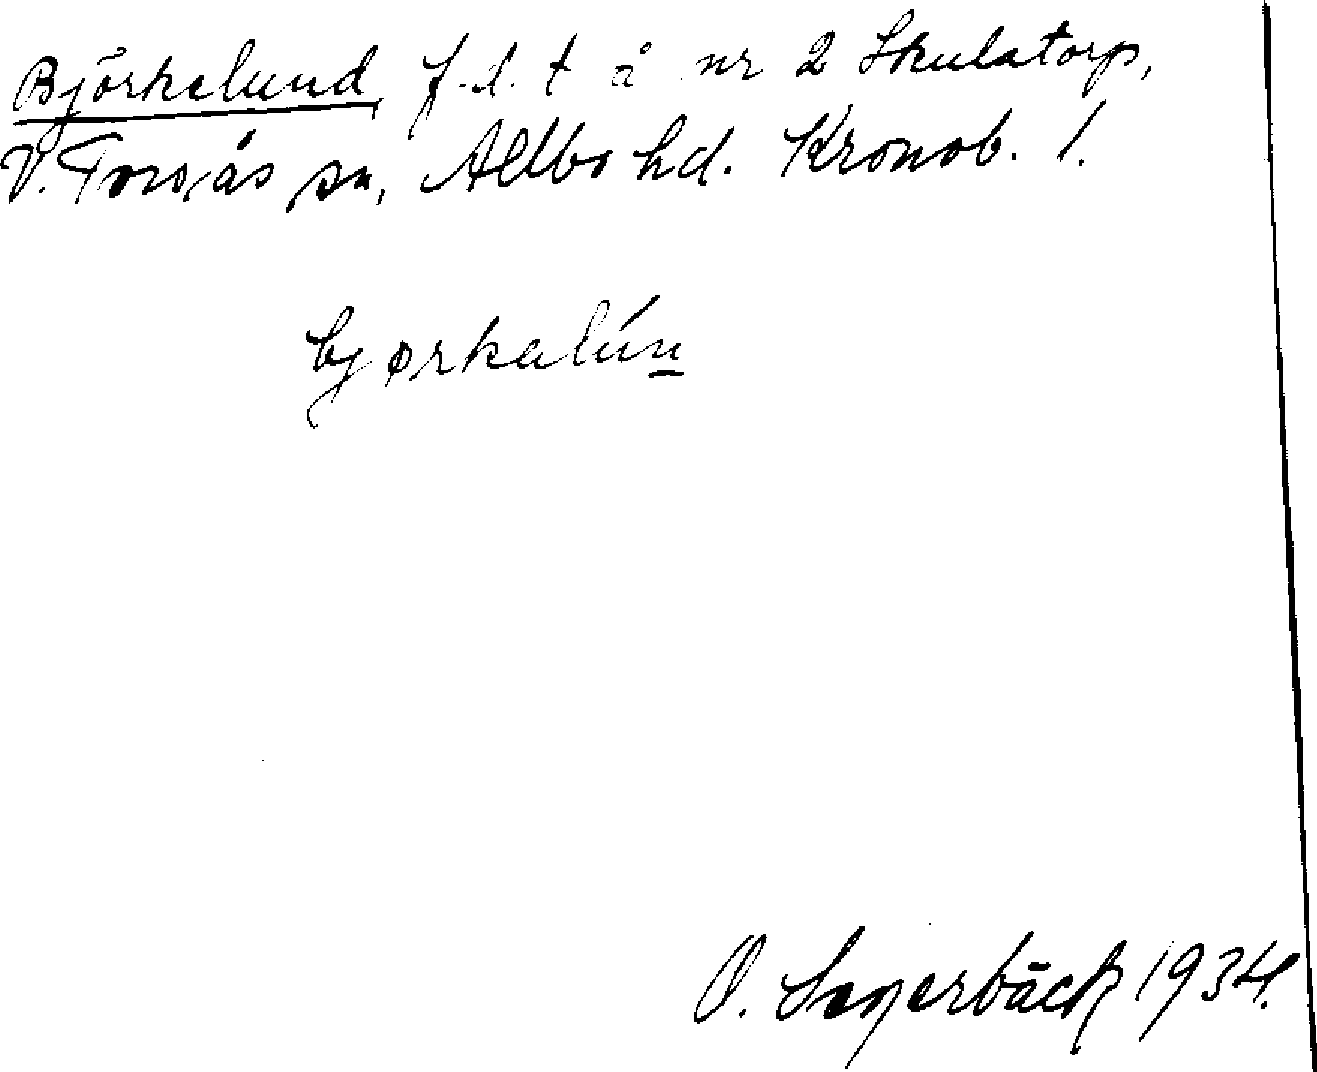 Björkelund, f.d. t å nr 2 Skulatorp,
V. Torsås sn, Allbo hd. Kronob. l.
bjørkalún
O. Sagerbäck 1934.